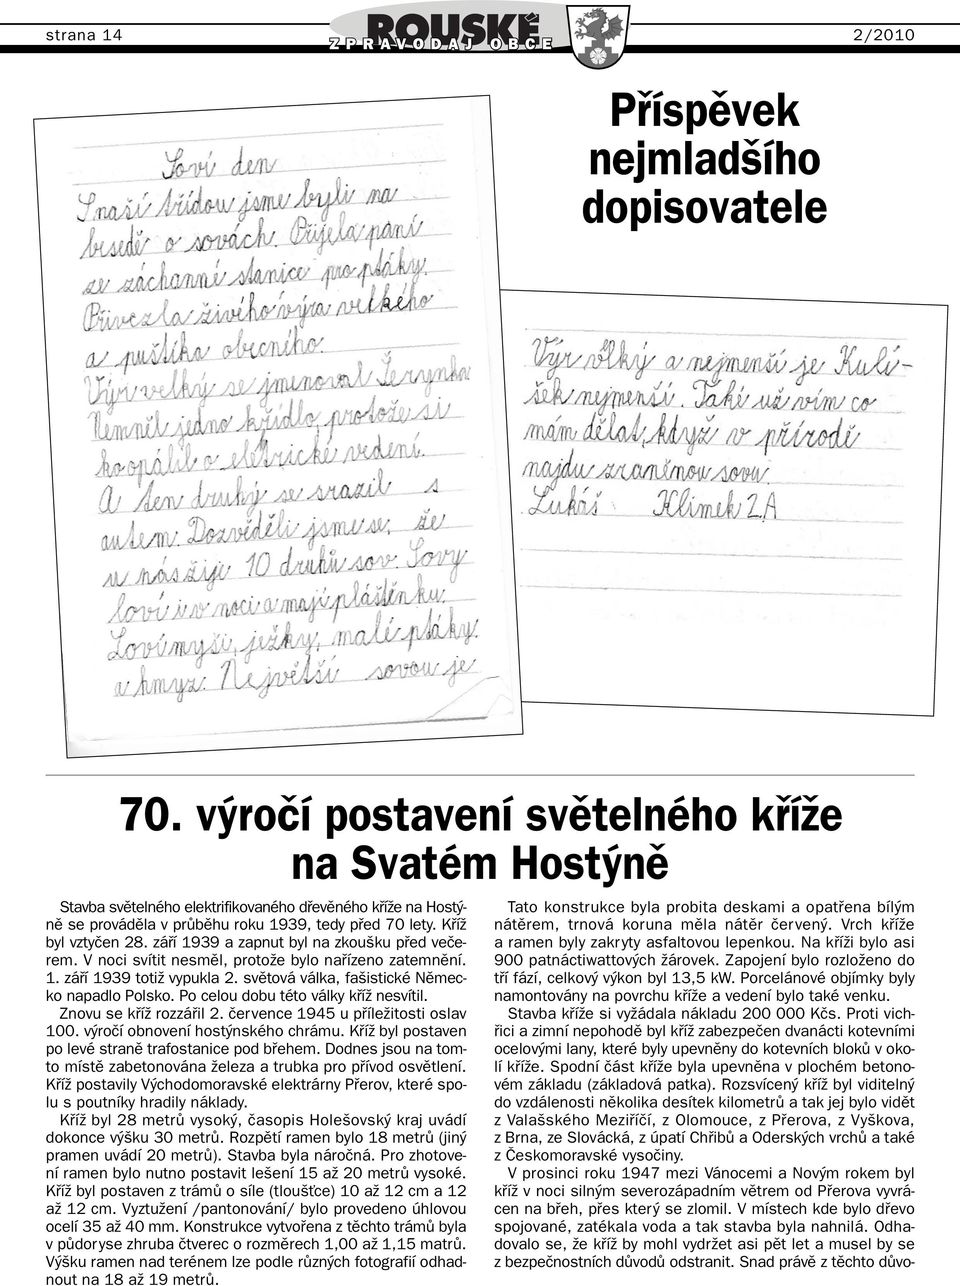 strana 14
ROUSKÉ
ZPRAVODAJ OBCE
2/2010
Příspěvek
nejmladšího
dopisovatele
Soví den
S naší třídou jsme byli na
besedě o sovách. Přijela paní
ze záchanné stanice pro ptáky.
Přivezla živého výra velkého
a puštíka obecného.
Výr velký se jmenoval Žerynka.
Nemněl jedno křídlo, protože si
ho opálil o eletrické vedení.
A ten druhý se srazil s
autem. Dozvěděli jsme se, že
u nás žijí 10 druhů sov. Sovy
loví i v noci a mají pláštěnku.
Loví myši, ježky, malé ptáky
a hmyz. Největší sovou je
Výr velký a nejmenší je Kulí-
šek nejmenší. Také už vím co
mám dělat, když v přírodě
najdu zraněnou sovu.
Lukáš Klimek 2.A
70. výročí postavení světelného kříže
na Svatém Hostýně
Stavba světelného elektrifikovaného dřevěného kříže na Hostý-
ně se prováděla v průběhu roku 1939, tedy před 70 lety. Kříž
byl vztyčen 28. září 1939 a zapnut byl na zkoušku před veče-
rem. V noci svítit nesměl, protože bylo nařízeno zatemnění.
1. září 1939 totiž vypukla 2. světová válka, fašistické Němec-
ko napadlo Polsko. Po celou dobu této války kříž nesvítil.
Znovu se kříž rozzářil 2. července 1945 u příležitosti oslav
100. výročí obnovení hostýnského chrámu. Kříž byl postaven
po levé straně trafostanice pod břehem. Dodnes jsou na tom-
to místě zabetonována železa a trubka pro přívod osvětlení.
Kříž postavily Východomoravské elektrárny Přerov, které spo-
lu s poutníky hradily náklady.
Kříž byl 28 metrů vysoký, časopis Holešovský kraj uvádí
dokonce výšku 30 metrů. Rozpětí ramen bylo 18 metrů (jiný
pramen uvádí 20 metrů). Stavba byla náročná. Pro zhotove-
ní ramen bylo nutno postavit lešení 15 až 20 metrů vysoké.
Kříž byl postaven z trámů o síle (tloušťce) 10 až 12 cm a 12
až 12 cm. Vyztužení /pantonování/ bylo provedeno úhlovou
ocelí 35 až 40 mm. Konstrukce vytvořena z těchto trámů byla
v půdoryse zhruba čtverec o rozměrech 1,00 až 1,15 matrů.
Výšku ramen nad terénem lze podle různých fotografií odhad-
nout na 18 až 19 metrů.
Tato konstrukce byla probita deskami a opatřena bílým
nátěrem, trnová koruna měla nátěr červený. Vrch kříže
a ramen byly zakryty asfaltovou lepenkou. Na kříži bylo asi
900 patnáctiwattových žárovek. Zapojení bylo rozloženo do
tří fází, celkový výkon byl 13,5 kW. Porcelánové objímky byly
namontovány na povrchu kříže a vedení bylo také venku.
Stavba kříže si vyžádala nákladu 200 000 Kčs. Proti vich-
řici a zimní nepohodě byl kříž zabezpečen dvanácti kotevními
ocelovými lany, které byly upevněny do kotevních bloků v oko-
lí kříže. Spodní část kříže byla upevněna v plochém betono-
vém základu (základová patka). Rozsvícený kříž byl viditelný
do vzdálenosti několika desítek kilometrů a tak jej bylo vidět
z Valašského Meziříčí, z Olomouce, z Přerova, z Vyškova,
z Brna, ze Slovácká, z úpatí Chřibů a Oderských vrchů a také
z Českomoravské vysočiny.
V prosinci roku 1947 mezi Vánocemi a Novým rokem byl
kříž v noci silným severozápadním větrem od Přerova vyvrá-
cen na břeh, přes který se zlomil. V místech kde bylo dřevo
spojované, zatékala voda a tak stavba byla nahnilá. Odha-
dovalo se, že kříž by mohl vydržet asi pět let a musel by se
z bezpečnostních důvodů odstranit. Snad právě z těchto důvo-